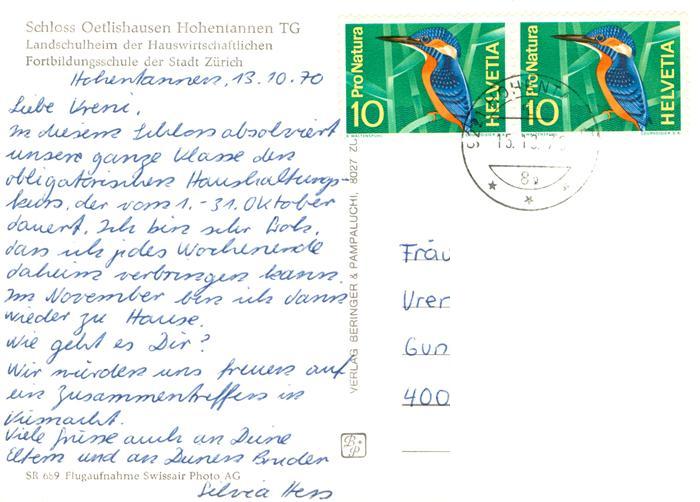 Schloss Oetlishausen Hohentannen TG
Landschulheim der Hauswirtschaftlichen
Fortbildungsschule der Stadt Zürich
Hohentannen, 13.10.70
Liebe Vreni,
In diesem Schloss absolviert
unsere ganze Klasse den
obligatorischen Haushaltungs-
kurs, der vom 1.-31. Oktober
dauert. Ich bin sehr froh,
dass ich jedes Wochenende
daheim verbringen kann.
Im November bin ich dann
wieder zu Hause.
Wie geht es Dir?
Wir würden uns freuen auf
ein Zusammentreffen in
Küsnacht.
Viele Grüsse auch an Deine
Eltern und an Deinen Bruder
Silvia Hess
SR 689 Flugaufnahme Swissair Photo AG
VERLAG BERINGER & PAMPALUCHI, 8027 ZÜ
B+P
Pro Natura
10
HELVETIA
COURVOISIER S.A.
Pro Natura
10
HELVETIA
COURVOISIER S.A.
8g
Fräu
Vrer
Gun
400